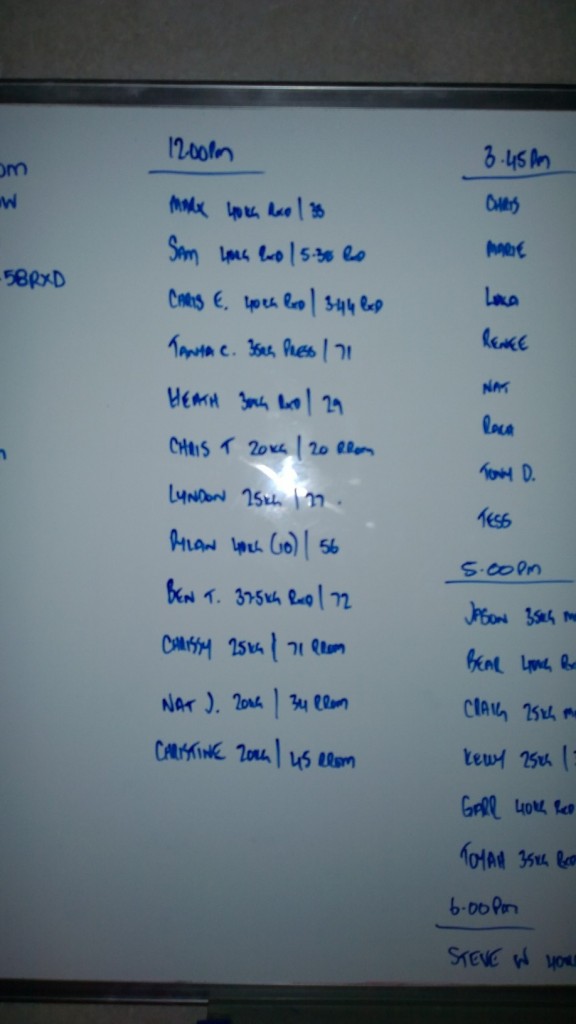 om
W
.58RXD
12.00Pm
MARK 40KG RXD | 38
SAM 40KG RXD | 5.38 RXD
CHRIS E. 40KG RXD | 3.44 RXD
TANYA C. 35KG PRESS | 71
HEATH 30KG RXD | 29
CHRIS T 20KG | 20 RROM
LYNDON 25KG | 27
DYLAN 40KG (10) | 56
BEN T. 37.5KG RXD | 72
CHRISSY 25KG | 71 RROM
NAT J. 20KG | 34 RROM
CHRISTINE 20KG | 45 RROM
3.45Pm
CHRIS
MARIE
LUKA
RENEE
NAT
TONY D.
TESS
5.00Pm
JASON 35KG M
BEAR 40KG RX
CRAIG 25KG M
KELLY 25KG |
GARR 40KG RXD
TOYAH 35KG RXD
6.00Pm
STEVE W 40K